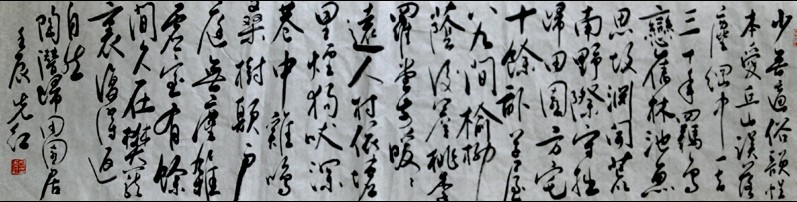 少無適俗韻性
本愛丘山誤落
塵網中一去
三十年羈鳥
戀舊林池魚
思故淵開荒
南野際守拙
歸田園方宅
十餘畝草屋
八九間榆柳
蔭後簷桃李
羅堂前曖々
遠人村依々墟
里煙狗吠深
巷中雞鳴
桑樹顛戶
庭無塵雜
虛室有餘
間久在樊籠
裏復得返
自然
陶潛歸田園居
壬辰